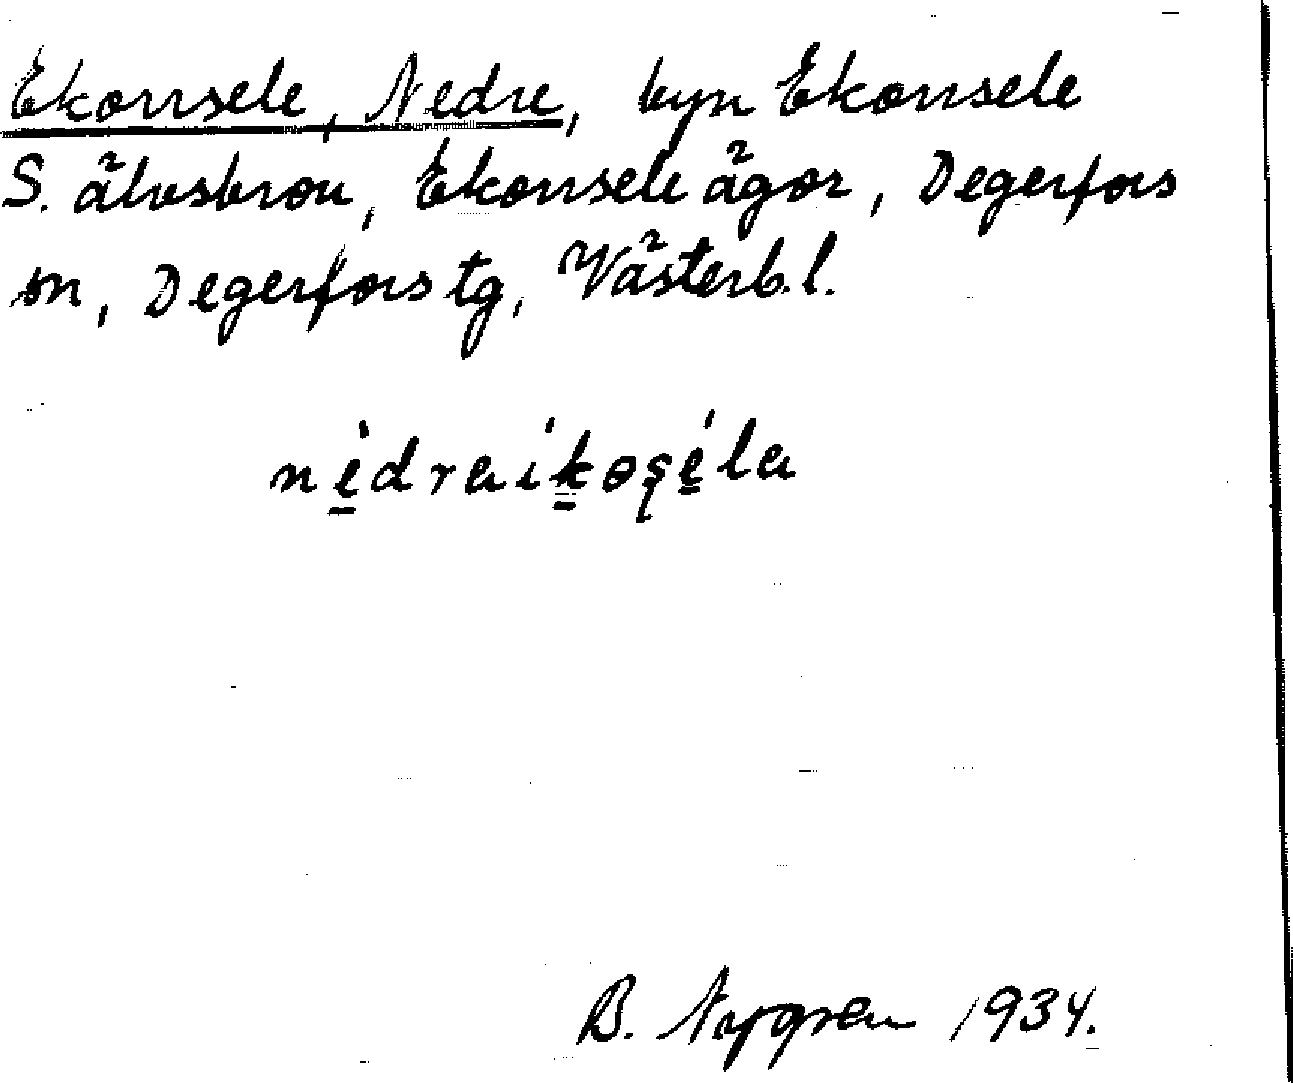 Ekorrsele, Nedre, byn Ekorrsele
S. älvsbron, Ekorrsele ägor, Degerfors
sn, Degerfors tg, Västerb. l.
nèdraíko̱şéla
B. Nygren 1934.